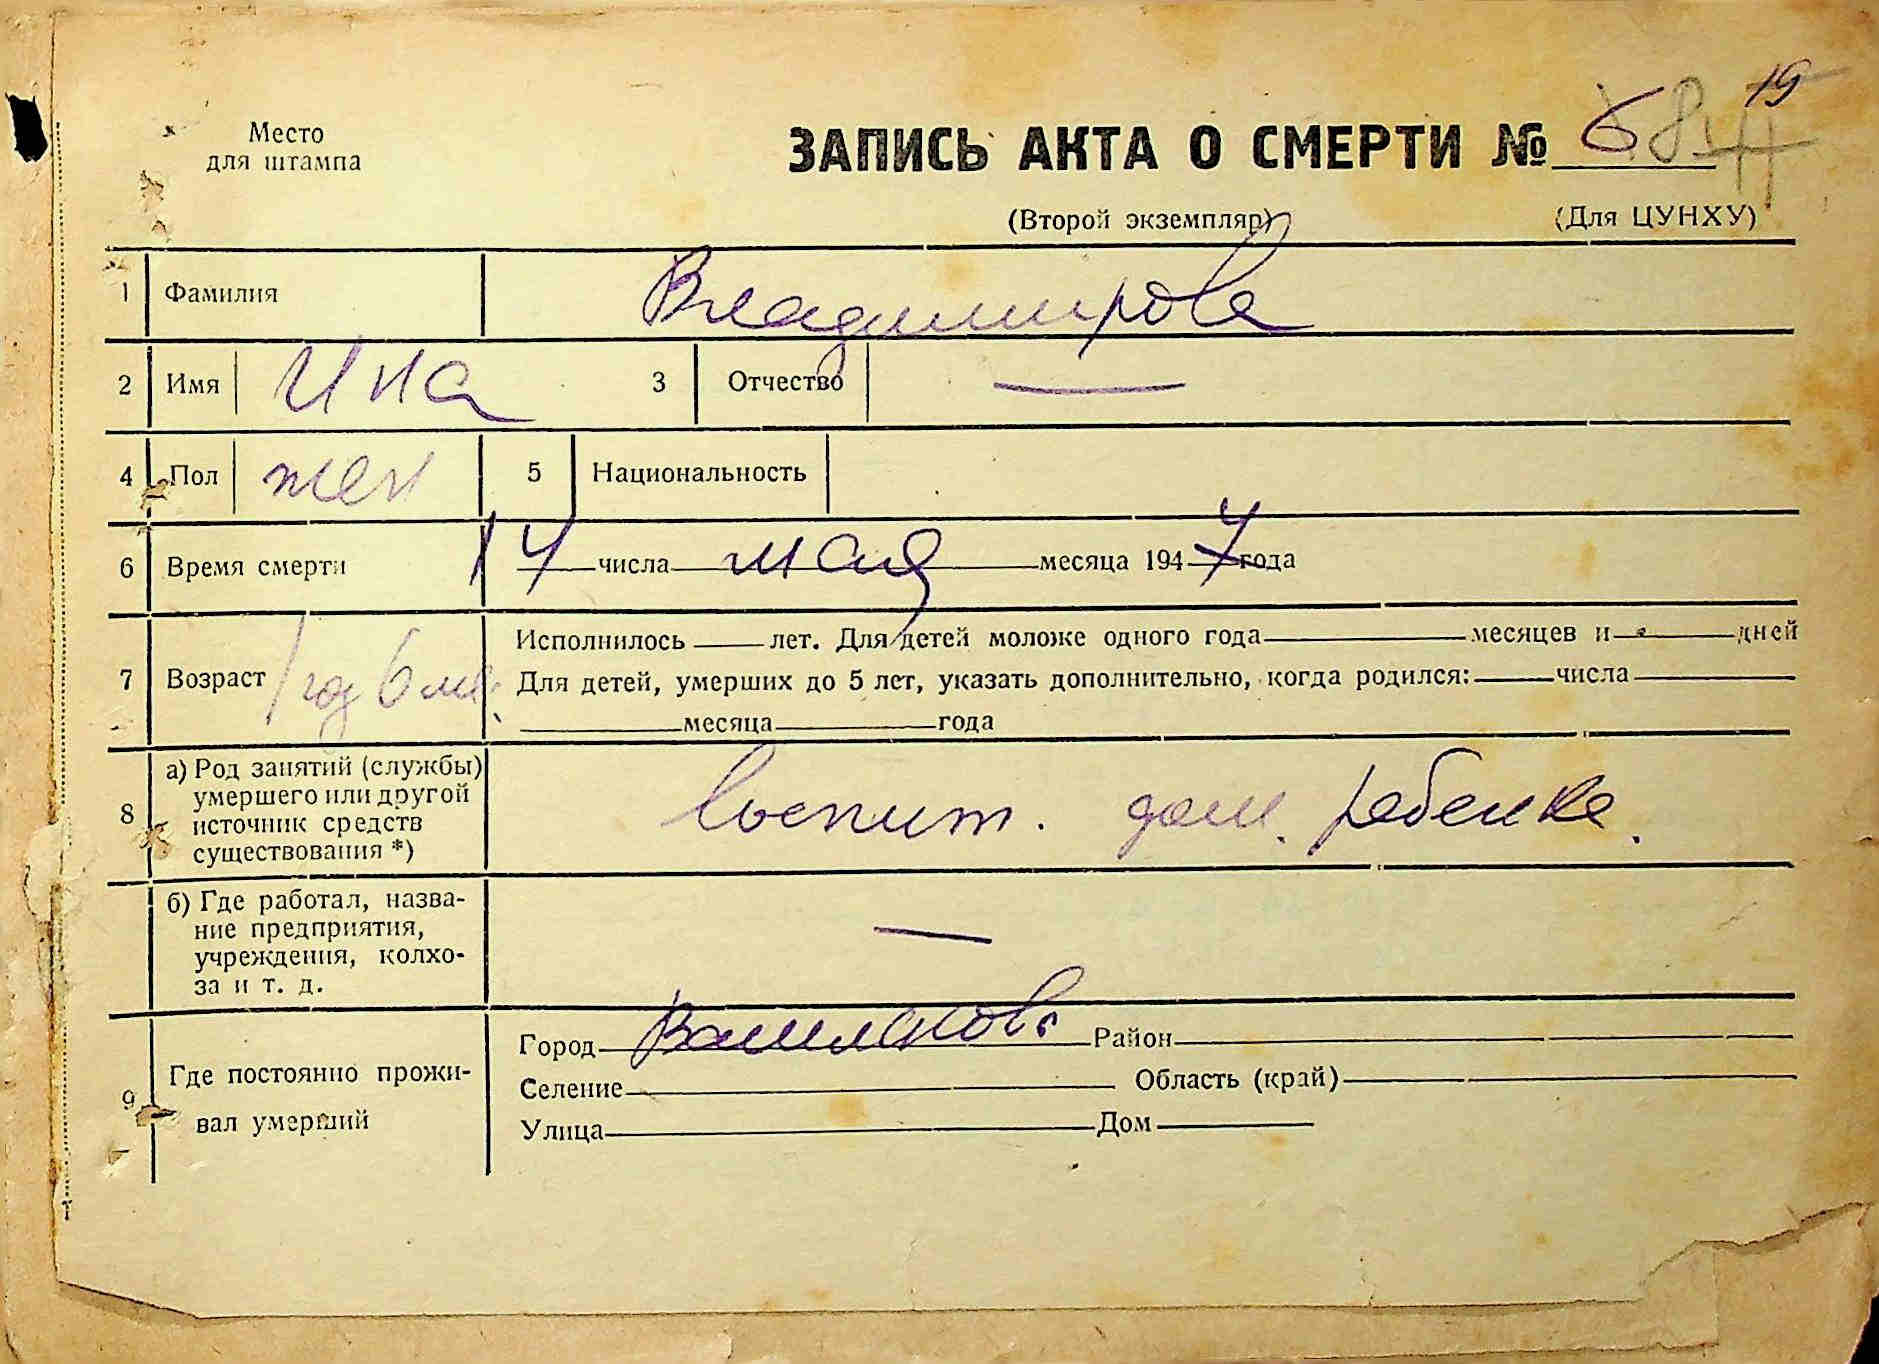 19
Место
для штампа
ЗАПИСЬ АКТА О СМЕРТИ №
(Второй экземпляр)
(Для ЦУНХУ)
1 Фамилия Владимирова
2 Имя Ина 3 Отчество —
4 Пол жен 5 Национальность
6 Время смерти 14 числа мая месяца 1947 года
7 Возраст 1 год 6 мес. Исполнилось лет. Для детей моложе одного года месяцев и дней
Для детей, умерших до 5 лет, указать дополнительно, когда родился: числа
месяца года
8 а) Род занятий (службы)
умершего или другой
источник средств
существования *)
воспит. дом. ребенка.
б) Где работал, назва-
ние предприятия,
учреждения, колхо-
за и т. д.
—
9 Где постоянно прожи-
вал умерший
Город Район
Селение Область (край)
Улица Дом